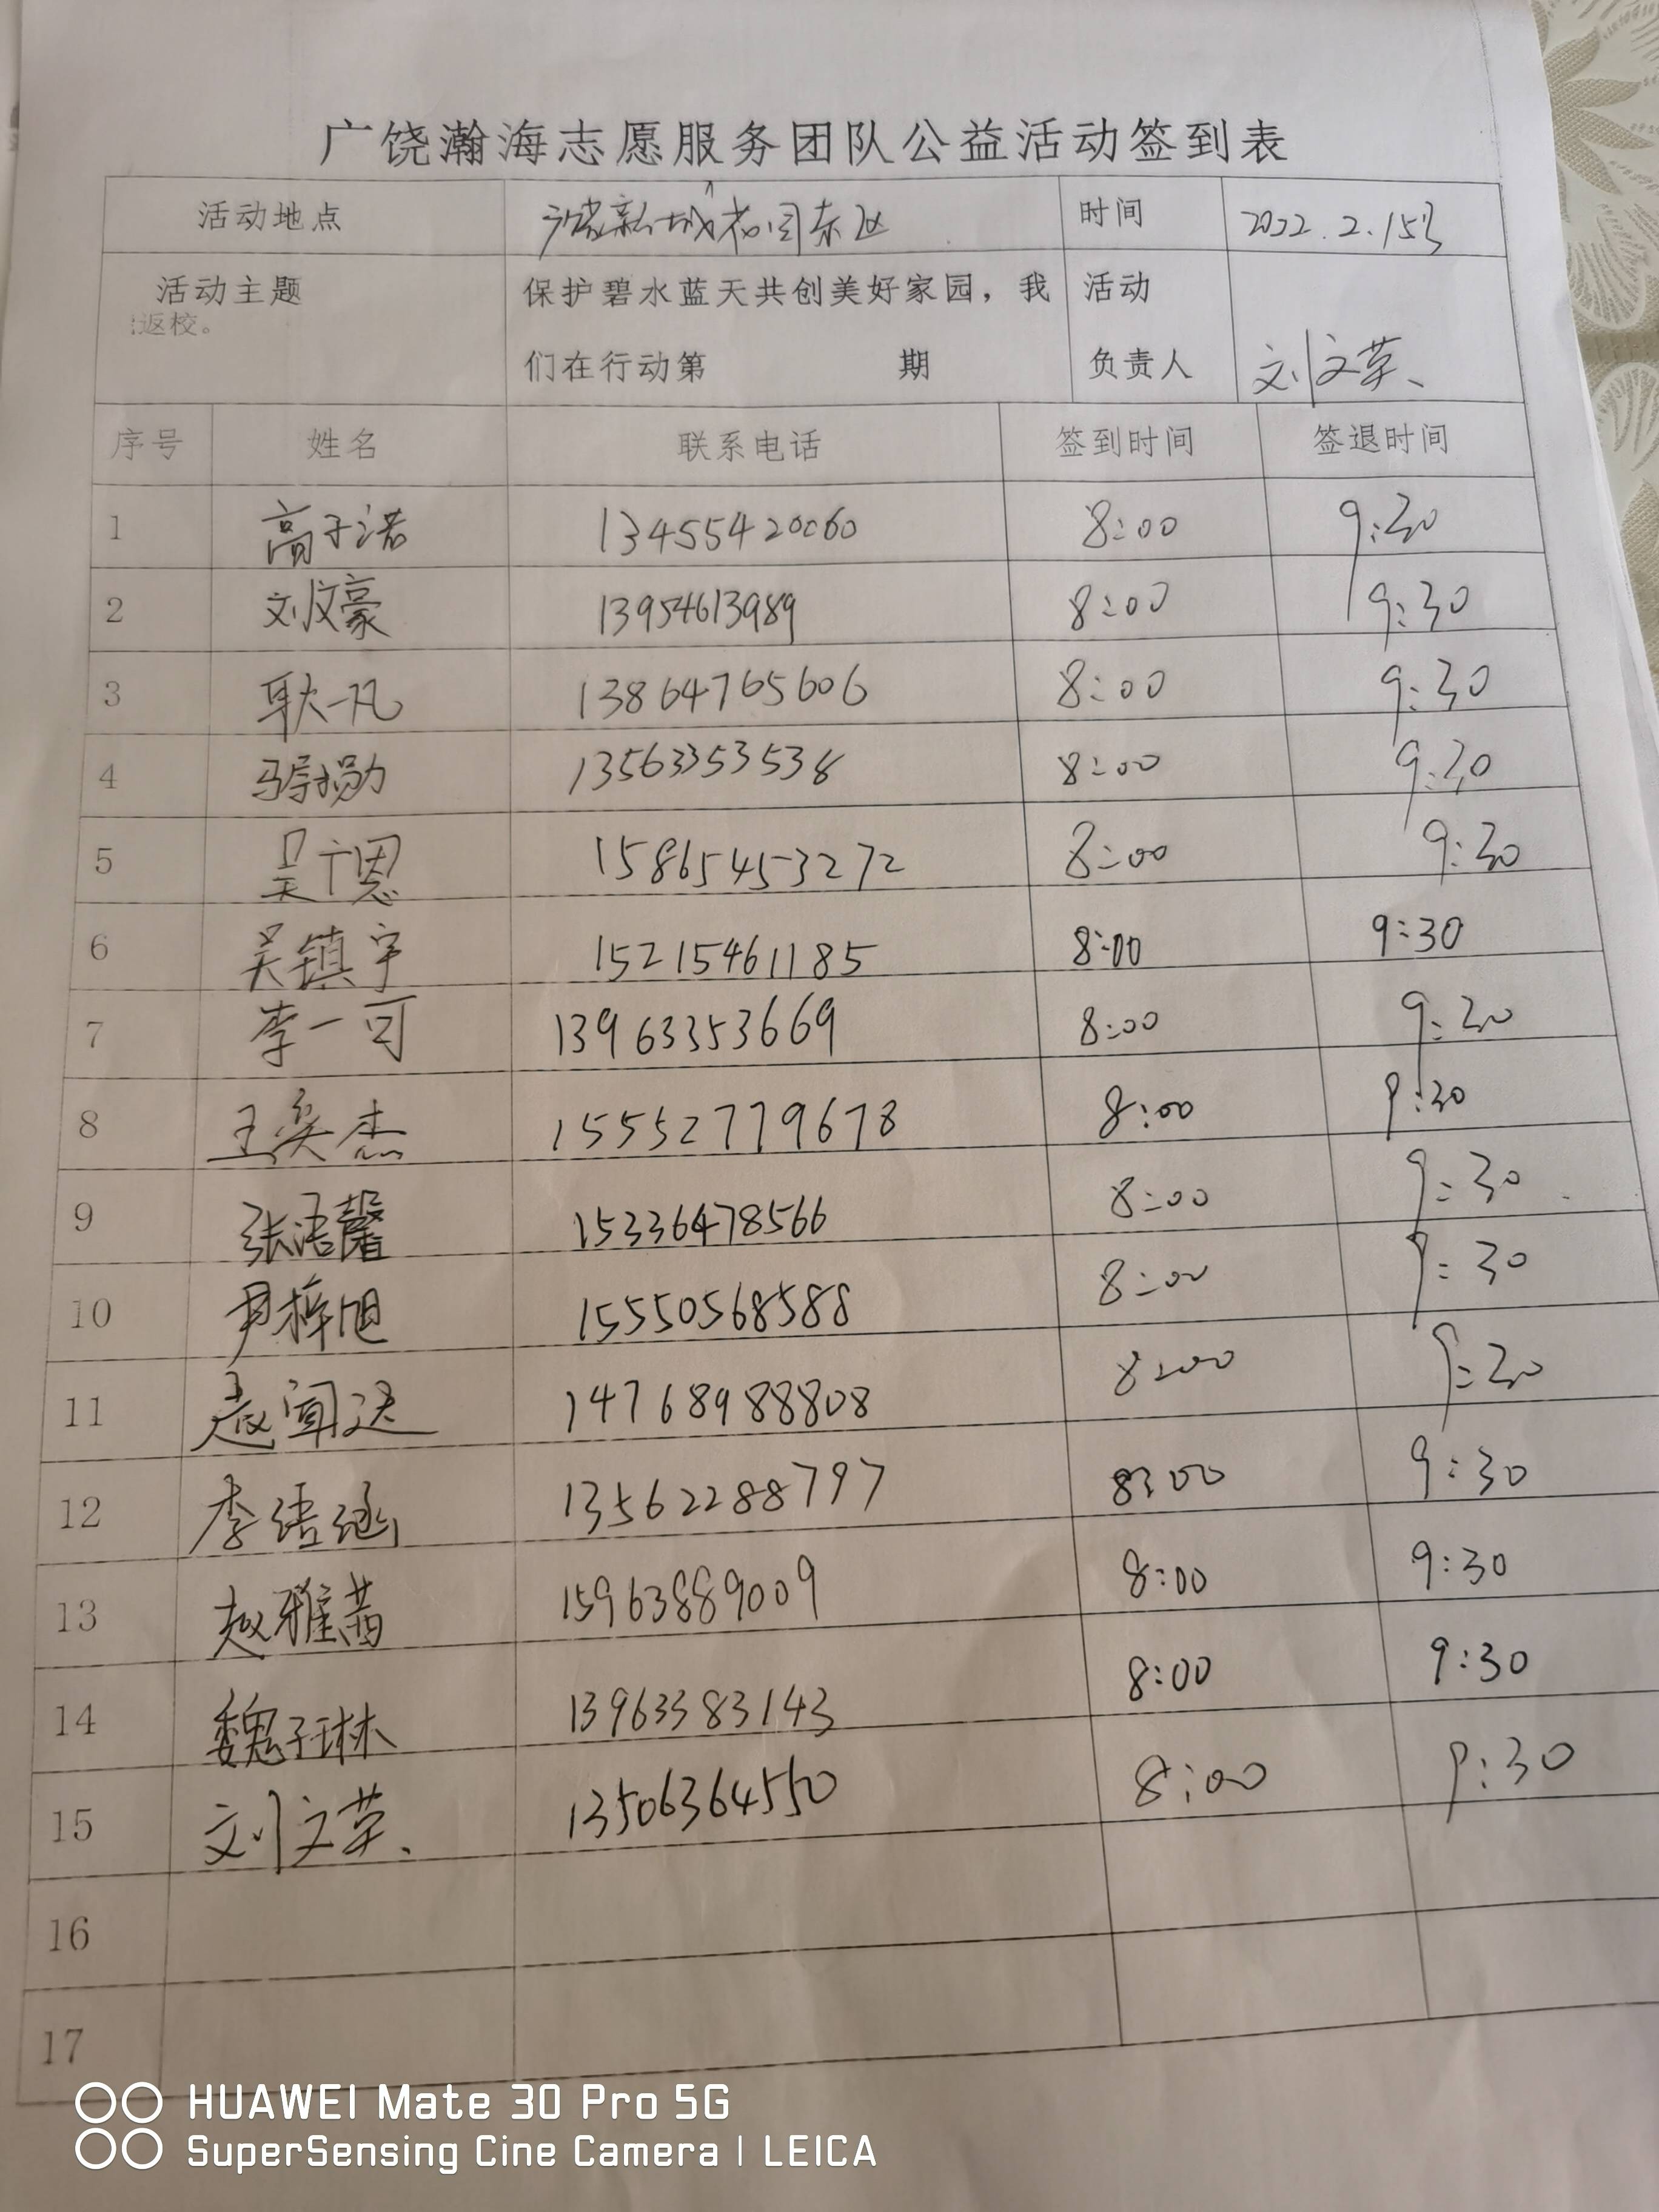 广饶瀚海志愿服务团队公益活动签到表
活动地点 广饶新城花园东区 时间 2022.2.15号
活动主题 保护碧水蓝天共创美好家园，我 活动
返校。
们在行动第 期 负责人 刘文荣、
序号 姓名 联系电话 签到时间 签退时间
1 高子诺 13455420060 8:00 9:30
2 刘文豪 13954613989 8:00 9:30
3 耿一凡 13864765606 8:00 9:30
4 13563353538 8:00 9:30
5 吴广恩 15865453272 8:00 9:30
6 吴镇宇 15215461185 8:00 9:30
7 李一可 13963353669 8:00 9:30
8 王奕杰 15552779678 8:00 9:30
9 张语馨 15336478566 8:00 9:30
10 尹梓旭 15550568588 8:00 9:30
11 聂闻达 14768988808 8:00 9:30
12 李语涵 13562288797 8:00 9:30
13 赵雅茜 15963889009 8:00 9:30
14 魏子琳 13963383143 8:00 9:30
15 刘文荣、 13506364550 8:00 9:30
16
17
HUAWEI Mate 30 Pro 5G
SuperSensing Cine Camera | LEICA